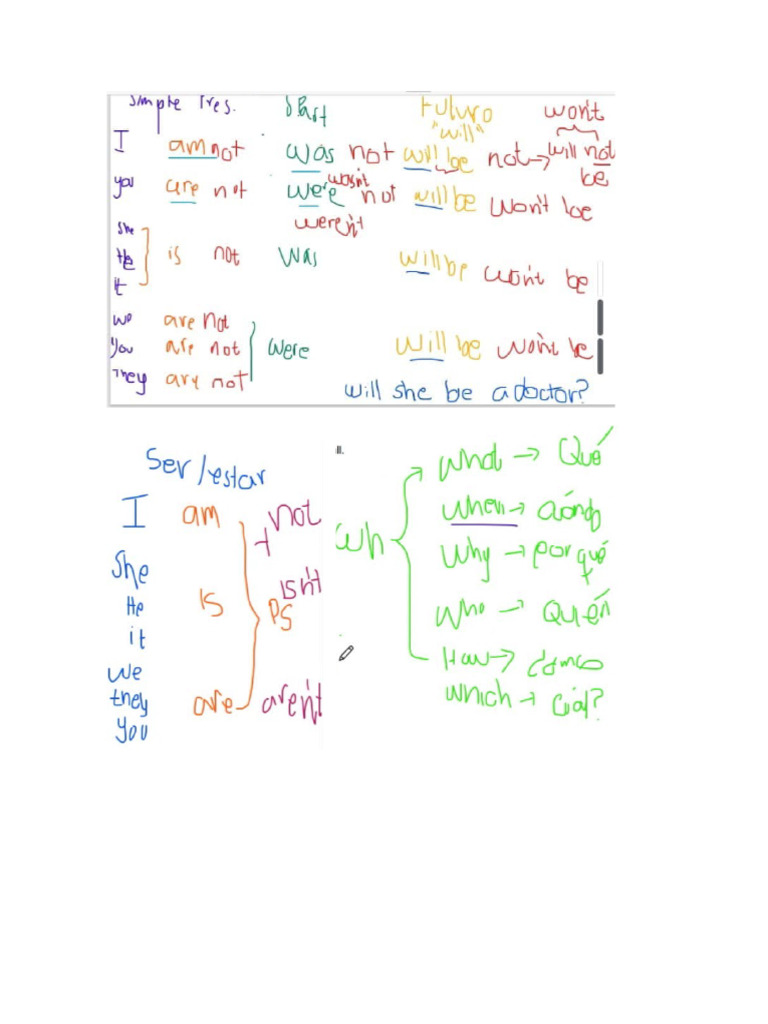 Simple Pres. Past Futuro won't
"will"
I am not was not will be not → will not be
you are not were not will be won't be
wasn't
weren't
she
He
it
is not was will be won't be
we are not
you are not were will be won't be
they are not
will she be a doctor?
Ser/estar
I am + not
She
He is PS isn't
it
we
they are aren't
you
II.
wh
what → Qué
when →
why → por qué
who → Quién
How →
which → cual?